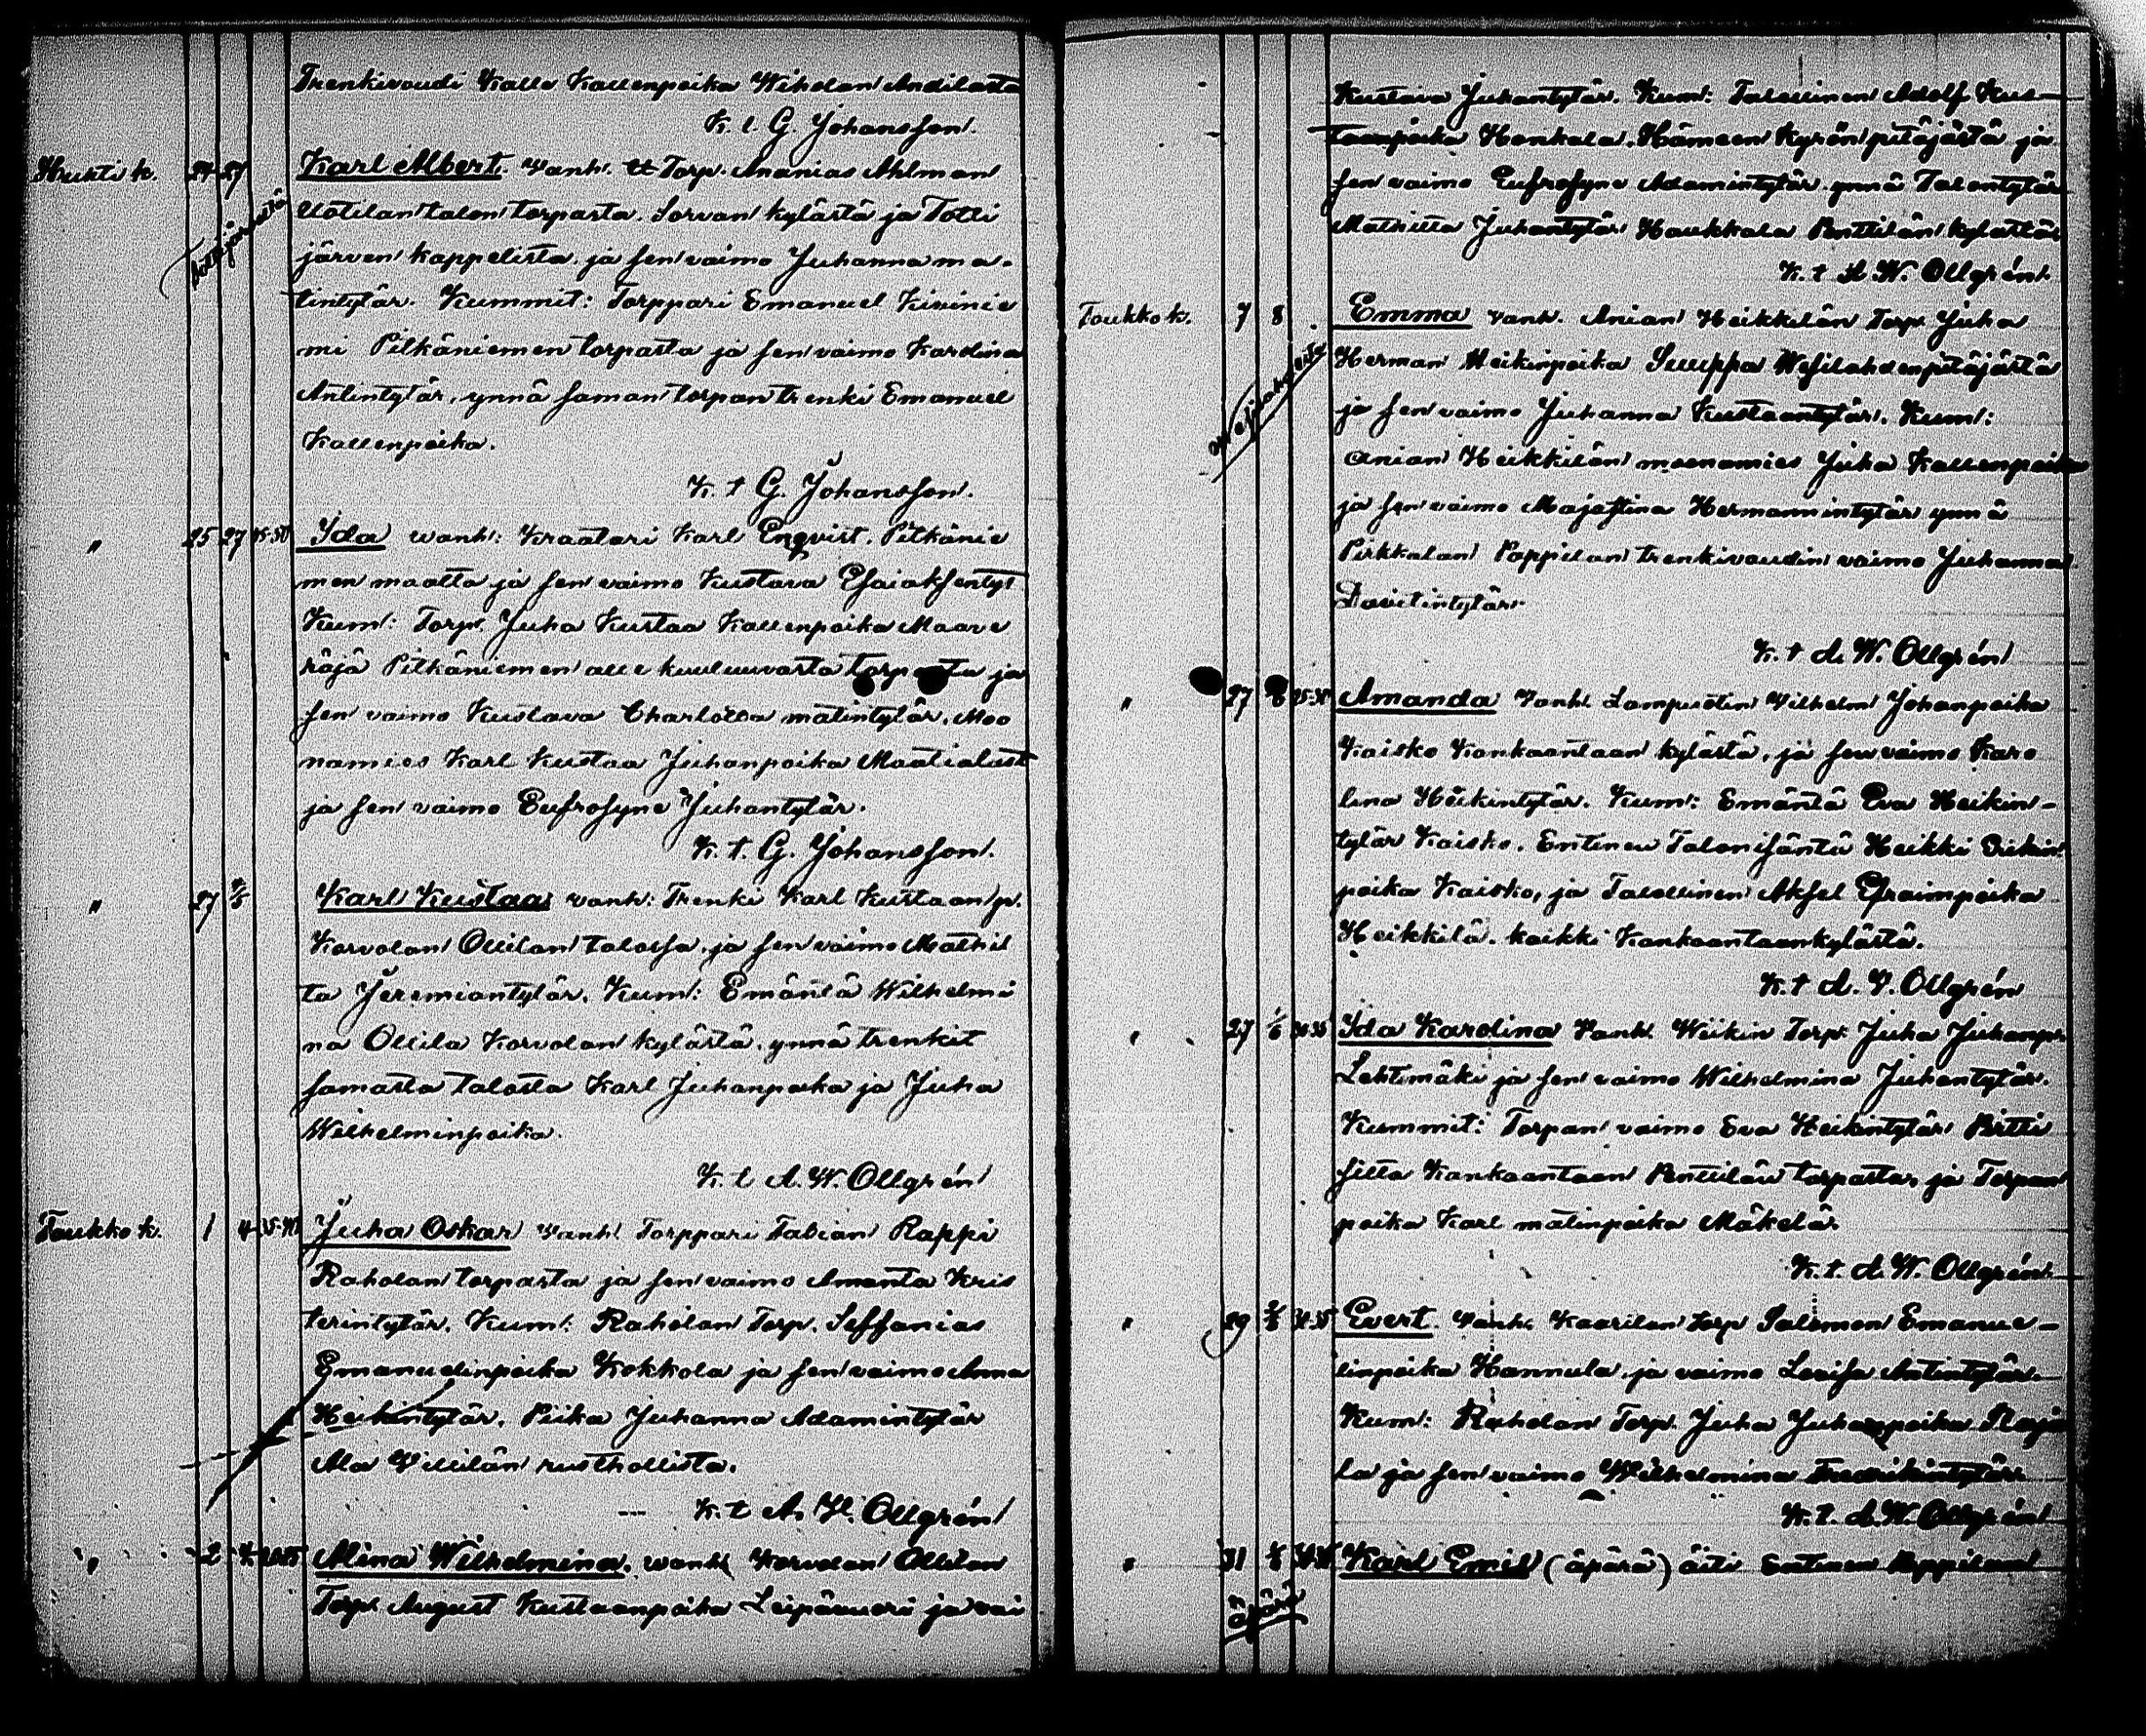 Trenkivoudi Kalle Kallenpoika Wiholan Andilasta
K. t. G. Johansson.
Huhti k. 24 27 Karl Albert. Vanh. Torp. Ananias Ahlman
Uotilan talon torpasta. Sorvan kylästä ja Totti
järven kappelista ja sen vaimo Juhanna ma-
tintytär. Kummit: Torppari Emanuel Kivinie
mi Pitkäniemen torpasta ja sen vaimo Karolina
Antintytär, ynnä saman torpan trenki Emanuel
Kallenpoika.
K. t G. Johansson.
" 25 27 25-30 Ida wanh: Kraatari Karl Enqvist. Pitkänie
men maalta ja sen vaimo Kustava Esaiaksentyt
Kum: Torp. Juha Kustaa Kallenpoika Maave
räjä Pitkäniemen alle kuuluvasta ja
sen vaimo Kustava Charlotta matintytär. Moo
namies Karl Kustaa Juhanpoika Maatialast
ja sen vaimo Eufrosyne Juhantytär.
K. t. G. Johansson.
" 27 Karl Kustaa vanh: Trenki Karl Kustaanp.
Korvolan Ollilan talossa, ja sen vaimo Mathil
ta Jeremiantytär. Kum: Emäntä Wilhelmi
na Ollila Korvolan kylästä, ynnä trenkit
samasta talosta Karl Juhanpoika ja Juha
Wilhelminpoika.
K. t A. W. Ollgrén
Toukko k. 1 4 35-40 Juha Oskar Vanh Torppari Fabian Rappi
Raholan torpasta ja sen vaimo Amanta Kris
terintytär. Kum: Raholan Torp. Seffanias
Emanuelinpoika Kokkola ja sen vaimo Anna
Heikintytär. Piika Juhanna Adamintytär
Ala Villilän rusthollista.
K. t A. W. Ollgrén
" 2 Alina Wilhelmina. wanh Korvolan Ollilan
Torp. August Kustaanpoika Leipävuori ja vai
Kustava Juhantytär. Kum: Talollinen Adolf Kus-
taanpoika Honkala. Hämeen Kyrön pitäjästä ja
sen vaimo Eufrosyne Adamintytär ynnä Talontytär
Mathilta Juhantytär Haukkala Penttilän kylästä
K. t A. W. Ollgrén
Toukko k. 7 8 Emma vanh. Anian Heikkilän Torp. Juha
Herman Heikinpoika Suuppa Wesilahden pitäjästä
ja sen vaimo Juhanna Kustaantytär. Kum:
Anian Heikkilän moonamies Juha Kallenpoika
ja sen vaimo Majastina Hermannintytär ynnä
Pirkkalan Pappilan trenkivoudin vaimo Juhanna
Davitintytär.
K. t A. W. Ollgrén
" 27 25-30 Amanda Vanh. Lampuotin Vilhelm Johanpoika
Kaisko Kankaantaan kylästä, ja sen vaimo Karo
lina Heikintytär. Kum: Emäntä Eva Heikin-
tytär Kaisko. Entinen Talonisäntä Heikki
poika Kaisko, ja Talollinen Aksel Efraimpoika
Heikkilä. kaikki Kankaantaankylästä.
K. t A. V. Ollgrén
" 27 1/6 30-35 Ida Karolina Vanh. Torp: Juha Juhanp.
Lehtimäki ja sen vaimo Wilhelmina Juhantytär.
Kummit: Torpan vaimo Eva Heikintytär Pirtti
silta Kankaantaan Penttilän torpasta, ja Torpan
poika Karl matinpoika Mäkelä.
K. t. A. W. Ollgrén.
" 29 30-35 Evert. Vanh. Kaarilan torp Salomon Emanue-
linpoika Hannula, ja vaimo Lovisa Antintytär.
Kum: Raholan Torp. Juha Juhanpoika Raja
la ja sen vaimo Wilhelmina Fredrikintytär
K. t. A. W. Ollgrén
" 31 Karl Emil (äpärä) äiti Entinen Pappilan
äpärä